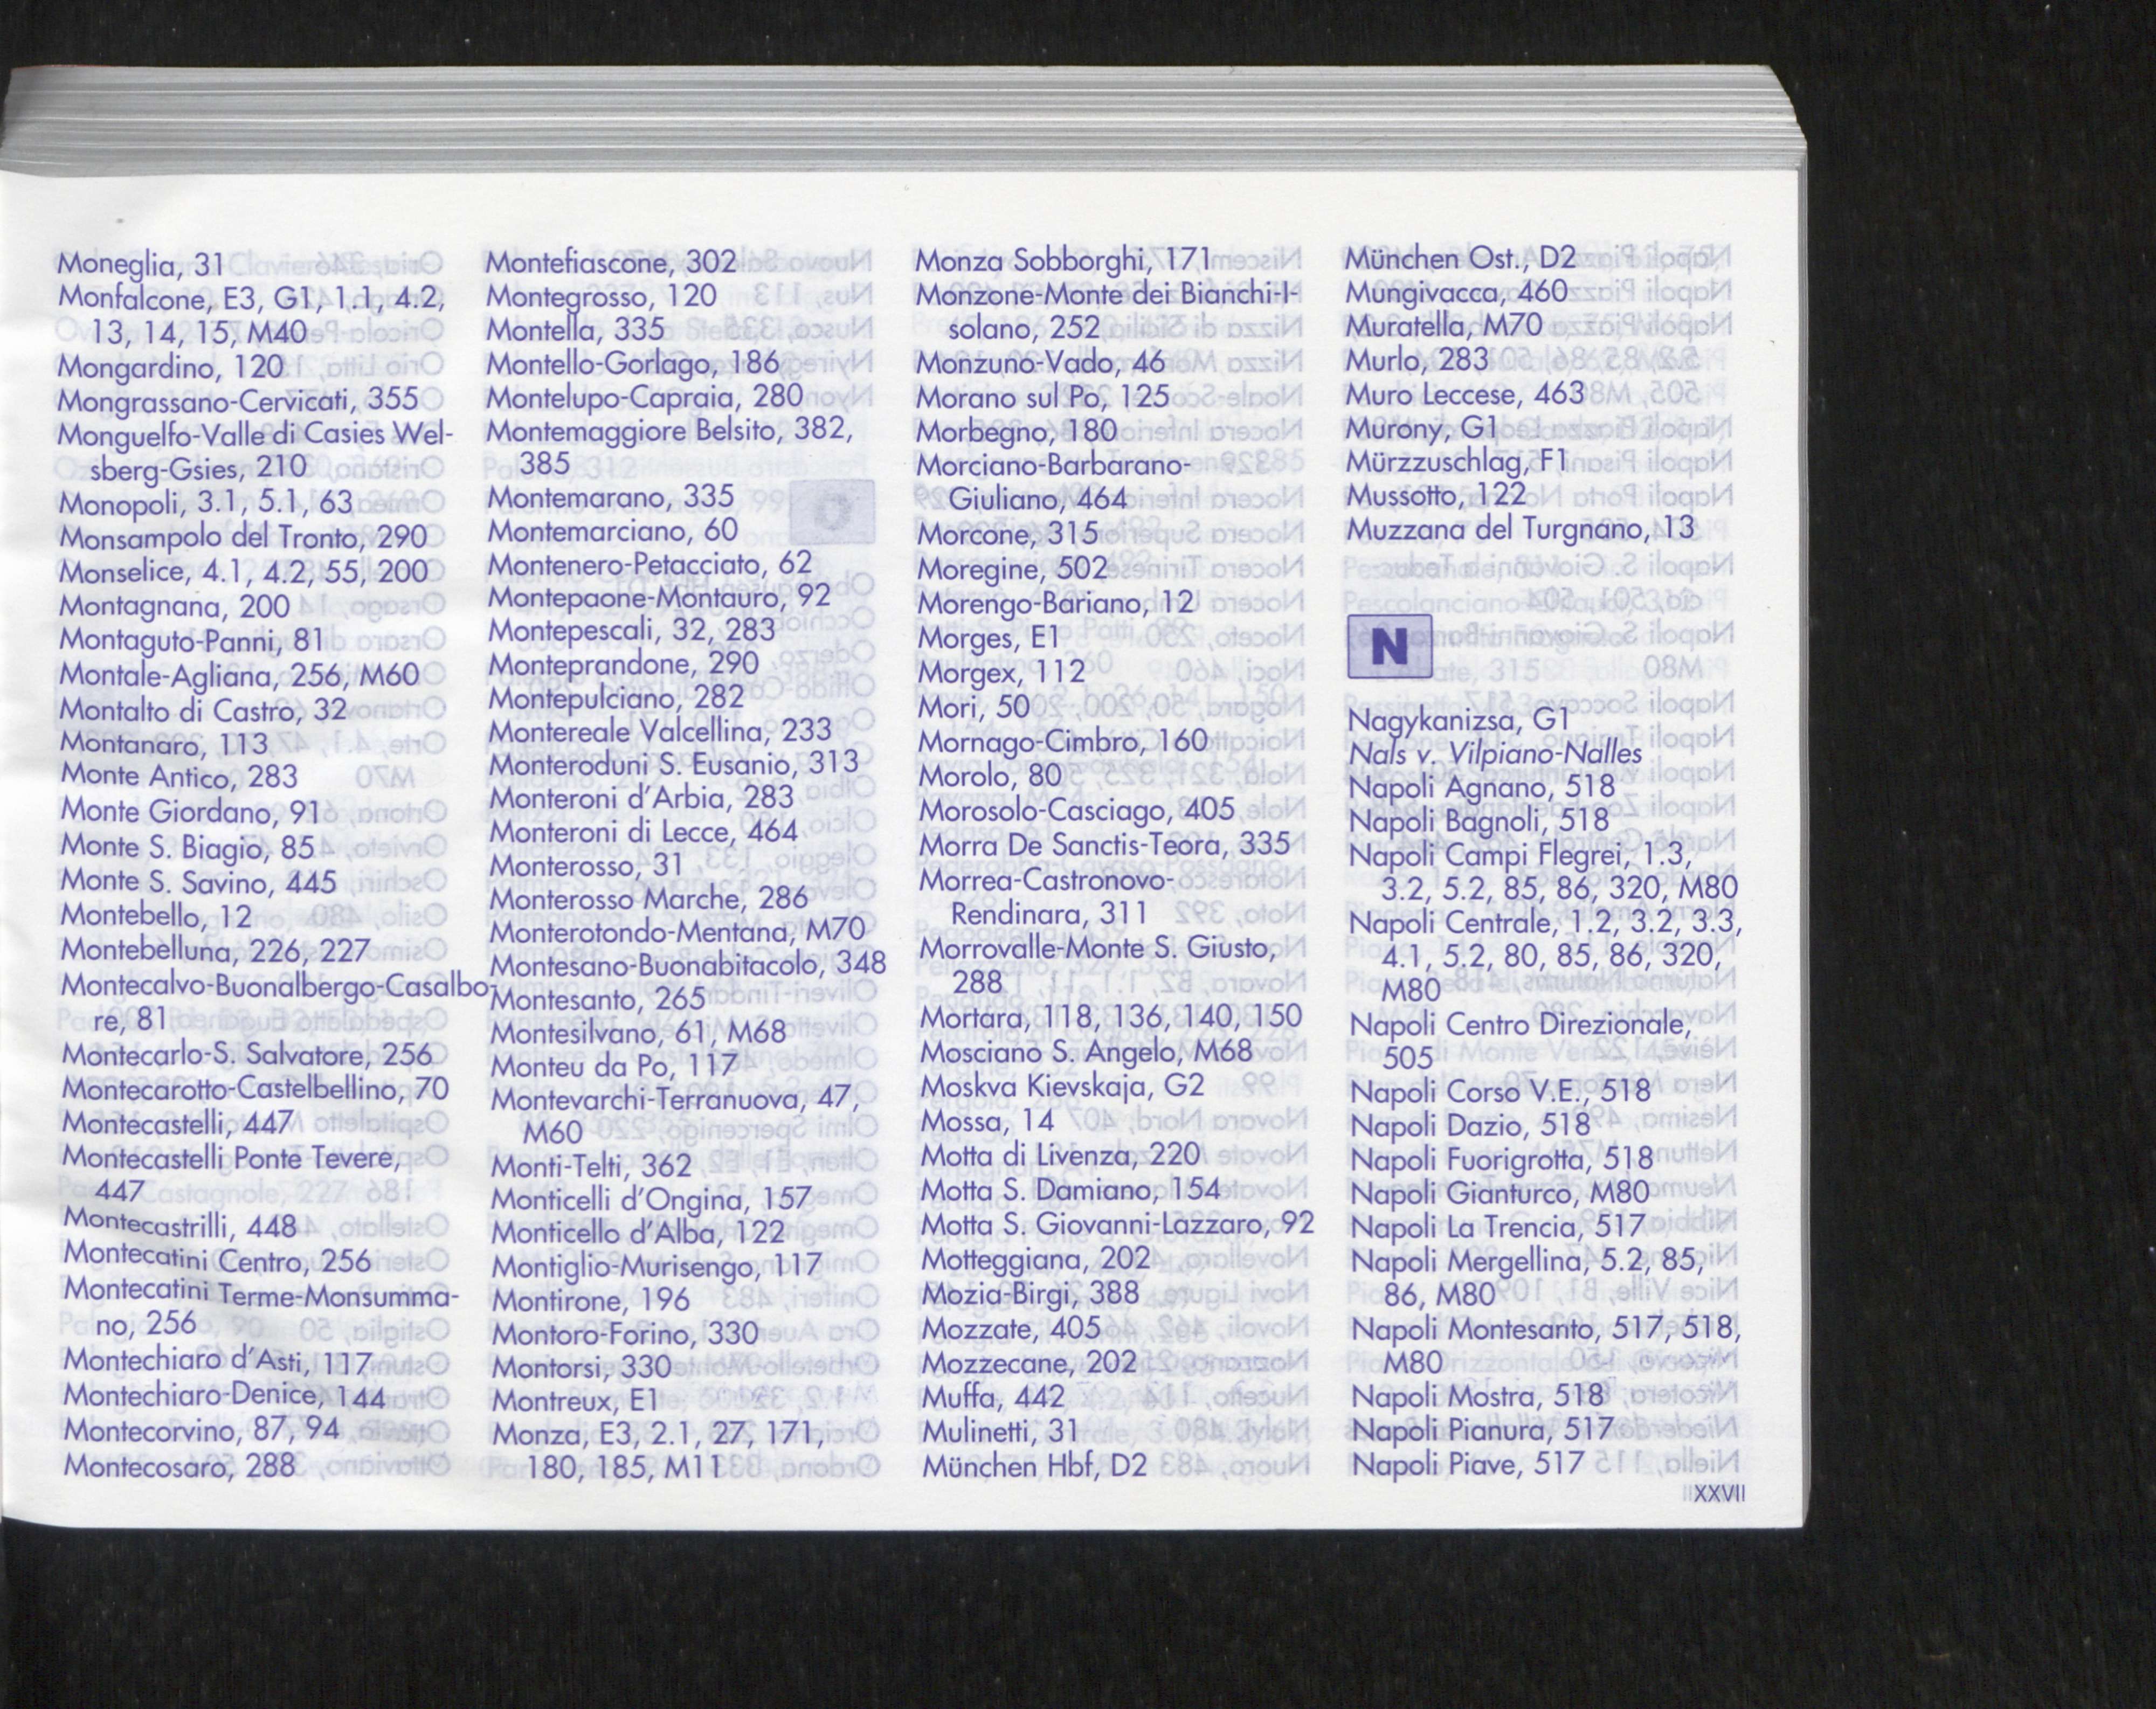 Moneglia, 31
Monfalcone, E3, G1, 1.1, 4.2,
13, 14, 15, M40
Mongardino, 120
Mongrassano-Cervicati, 355
Monguelfo-Valle di Casies Wel-
sberg-Gsies, 210
Monopoli, 3.1, 5.1, 63
Monsampolo del Tronto, 290
Monselice, 4.1, 4.2, 55, 200
Montagnana, 200
Montaguto-Panni, 81
Montale-Agliana, 256, M60
Montalto di Castro, 32
Montanaro, 113
Monte Antico, 283
Monte Giordano, 91
Monte S. Biagio, 85
Monte S. Savino, 445
Montebello, 12
Montebelluna, 226, 227
Montecalvo-Buonalbergo-Casalbo-
re, 81
Montecarlo-S. Salvatore, 256
Montecarotto-Castelbellino, 70
Montecastelli, 447
Montecastelli Ponte Tevere,
447
Montecastrilli, 448
Montecatini Centro, 256
Montecatini Terme-Monsumma-
no, 256
Montechiaro d'Asti, 117
Montechiaro-Denice, 144
Montecorvino, 87, 94
Montecosaro, 288
Montefiascone, 302
Montegrosso, 120
Montella, 335
Montello-Gorlago, 186
Montelupo-Capraia, 280
Montemaggiore Belsito, 382,
385
Montemarano, 335
Montemarciano, 60
Montenero-Petacciato, 62
Montepaone-Montauro, 92
Montepescali, 32, 283
Monteprandone, 290
Montepulciano, 282
Montereale Valcellina, 233
Monteroduni S. Eusanio, 313
Monteroni d'Arbia, 283
Monteroni di Lecce, 464
Monterosso, 31
Monterosso Marche, 286
Monterotondo-Mentana, M70
Montesano-Buonabitacolo, 348
Montesanto, 265
Montesilvano, 61, M68
Monteu da Po, 117
Montevarchi-Terranuova, 47,
M60
Monti-Telti, 362
Monticelli d'Ongina, 157
Monticello d'Alba, 122
Montiglio-Murisengo, 117
Montirone, 196
Montoro-Forino, 330
Montorsi, 330
Montreux, E1
Monza, E3, 2.1, 27, 171,
180, 185, M11
Monza Sobborghi, 171
Monzone-Monte dei Bianchi-I-
solano, 252
Monzuno-Vado, 46
Morano sul Po, 125
Morbegno, 180
Morciano-Barbarano-
Giuliano, 464
Morcone, 315
Moregine, 502
Morengo-Bariano, 12
Morges, E1
Morgex, 112
Mori, 50
Mornago-Cimbro, 160
Morolo, 80
Morosolo-Casciago, 405
Morra De Sanctis-Teora, 335
Morrea-Castronovo-
Rendinara, 311
Morrovalle-Monte S. Giusto,
288
Mortara, 118, 136, 140, 150
Mosciano S. Angelo, M68
Moskva Kievskaja, G2
Mossa, 14
Motta di Livenza, 220
Motta S. Damiano, 154
Motta S. Giovanni-Lazzaro, 92
Motteggiana, 202
Mozia-Birgi, 388
Mozzate, 405
Mozzecane, 202
Muffa, 442
Mulinetti, 31
München Hbf, D2
München Ost., D2
Mungivacca, 460
Muratella, M70
Murlo, 283
Muro Leccese, 463
Murony, G1
Mürzzuschlag, F1
Mussotto, 122
Muzzana del Turgnano, 13
N
Nagykanizsa, G1
Nals v. Vilpiano-Nalles
Napoli Agnano, 518
Napoli Bagnoli, 518
Napoli Campi Flegrei, 1.3,
3.2, 5.2, 85, 86, 320, M80
Napoli Centrale, 1.2, 3.2, 3.3,
4.1, 5.2, 80, 85, 86, 320,
M80
Napoli Centro Direzionale,
505
Napoli Corso V.E., 518
Napoli Dazio, 518
Napoli Fuorigrotta, 518
Napoli Gianturco, M80
Napoli La Trencia, 517
Napoli Mergellina, 5.2, 85,
86, M80
Napoli Montesanto, 517, 518,
M80
Napoli Mostra, 518
Napoli Pianura, 517
Napoli Piave, 517
XXVII